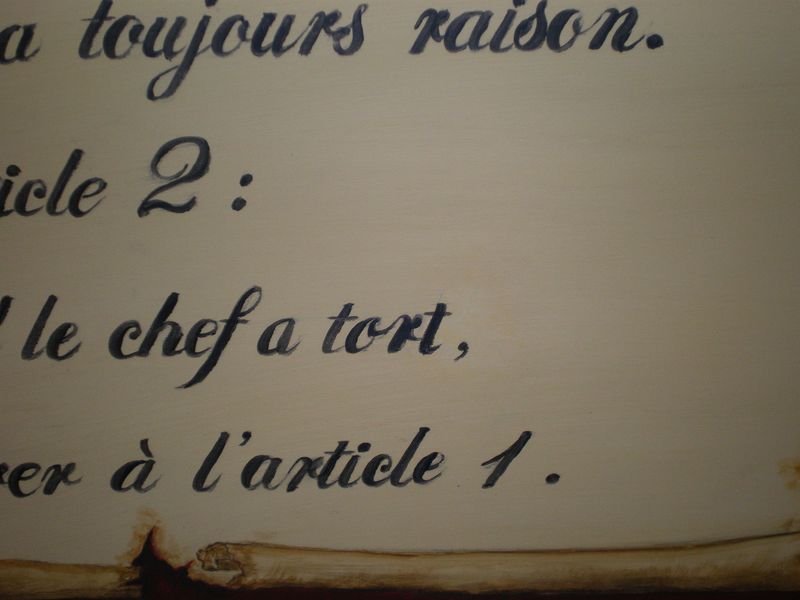 a toujours raison.
icle 2 :
le chef a tort,
rer à l'article 1.